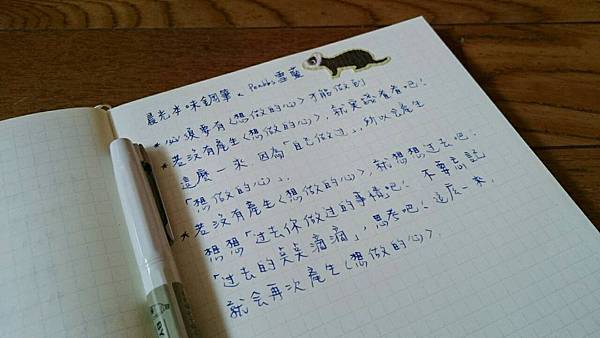 晨光本味鋼筆 x Pebble 雲藍
* 必須要有〈想做的心〉才能做到
* 若沒有產生〈想做的心〉,就實踐看看吧!
這麼一來 因為「自己做过」,所以会產生
「想做的心」。
* 若沒有產生〈想做的心〉,就想想过去吧!
想想「过去你做过的事情吧!不要忘記
「过去的点点滴滴」,思考吧!這麼一來,
就会再次產生〈想做的心〉.